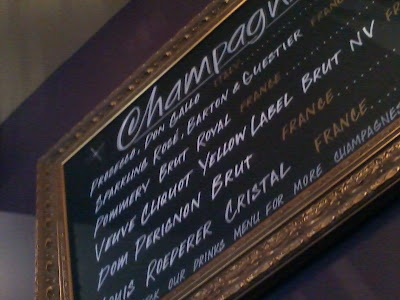 Champagn
PROSECCO, DON GALLO ITALY
SPARKLING ROSÉ, BARTON & GUESTIER FRANCE
POMMERY BRUT ROYAL FRANCE
VEUVE CLIQUOT YELLOW LABEL BRUT NV
DOM PERIGNON BRUT FRANCE
LOUIS ROEDERER CRISTAL FRANCE
OUR DRINKS MENU FOR MORE CHAMPAGNES